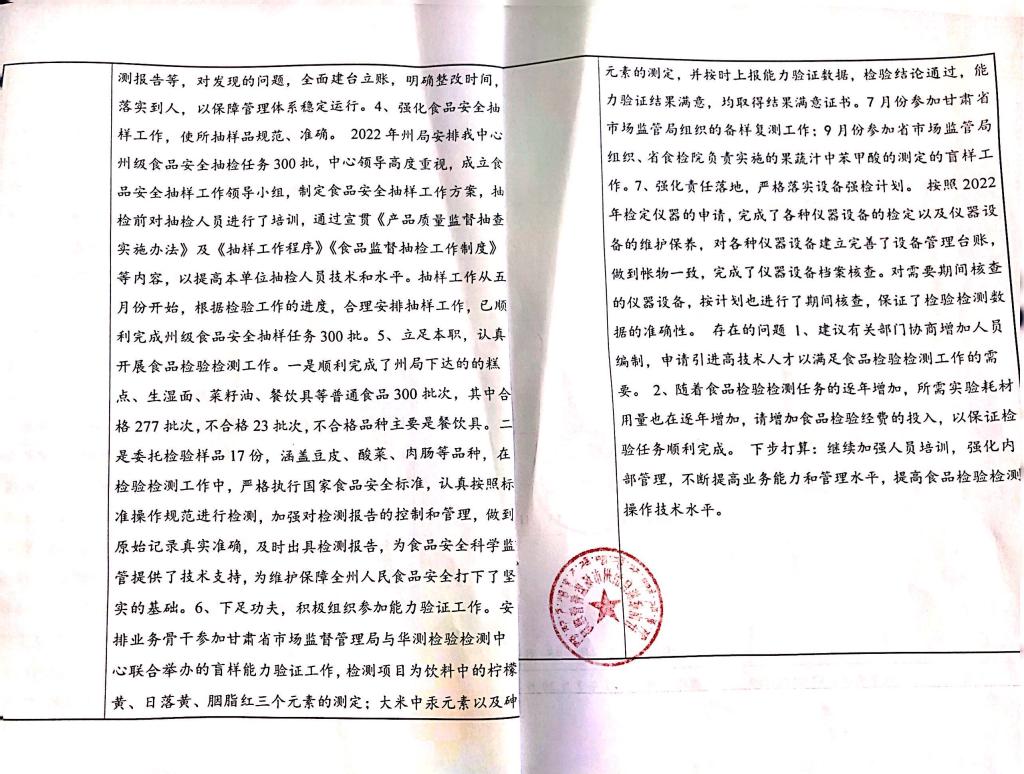 测报告等，对发现的问题，全面建台立账，明确整改时间，
落实到人，以保障管理体系稳定运行。4、强化食品安全抽
样工作，使所抽样品规范、准确。 2022 年州局安排我中心
州级食品安全抽检任务 300 批，中心领导高度重视，成立食
品安全抽样工作领导小组，制定食品安全抽样工作方案，抽
检前对抽检人员进行了培训，通过宣贯《产品质量监督抽查
实施办法》及《抽样工作程序》《食品监督抽检工作制度》
等内容，以提高本单位抽检人员技术和水平。抽样工作从五
月份开始，根据检验工作的进度，合理安排抽样工作，已顺
利完成州级食品安全抽样任务 300 批。5、立足本职，认真
开展食品检验检测工作。一是顺利完成了州局下达的的糕
点、生湿面、菜籽油、餐饮具等普通食品 300 批次，其中合
格 277 批次，不合格 23 批次，不合格品种主要是餐饮具。二
是委托检验样品 17 份，涵盖豆皮、酸菜、肉肠等品种，在
检验检测工作中，严格执行国家食品安全标准，认真按照标
准操作规范进行检测，加强对检测报告的控制和管理，做到
原始记录真实准确，及时出具检测报告，为食品安全科学监
管提供了技术支持，为维护保障全州人民食品安全打下了坚
实的基础。6、下足功夫，积极组织参加能力验证工作。安
排业务骨干参加甘肃省市场监督管理局与华测检验检测中
心联合举办的盲样能力验证工作，检测项目为饮料中的柠檬
黄、日落黄、胭脂红三个元素的测定；大米中汞元素以及砷
元素的测定，并按时上报能力验证数据，检验结论通过，能
力验证结果满意，均取得结果满意证书。7 月份参加甘肃省
市场监管局组织的备样复测工作；9 月份参加省市场监管局
组织、省食检院负责实施的果蔬汁中苯甲酸的测定的盲样工
作。7、强化责任落地，严格落实设备强检计划。 按照 2022
年检定仪器的申请，完成了各种仪器设备的检定以及仪器设
备的维护保养，对各种仪器设备建立完善了设备管理台账，
做到帐物一致，完成了仪器设备档案核查。对需要期间核查
的仪器设备，按计划也进行了期间核查，保证了检验检测数
据的准确性。 存在的问题 1、建议有关部门协商增加人员
编制，申请引进高技术人才以满足食品检验检测工作的需
要。 2、随着食品检验检测任务的逐年增加，所需实验耗材
用量也在逐年增加，请增加食品检验经费的投入，以保证检
验任务顺利完成。 下步打算：继续加强人员培训，强化内
部管理，不断提高业务能力和管理水平，提高食品检验检测
操作技术水平。